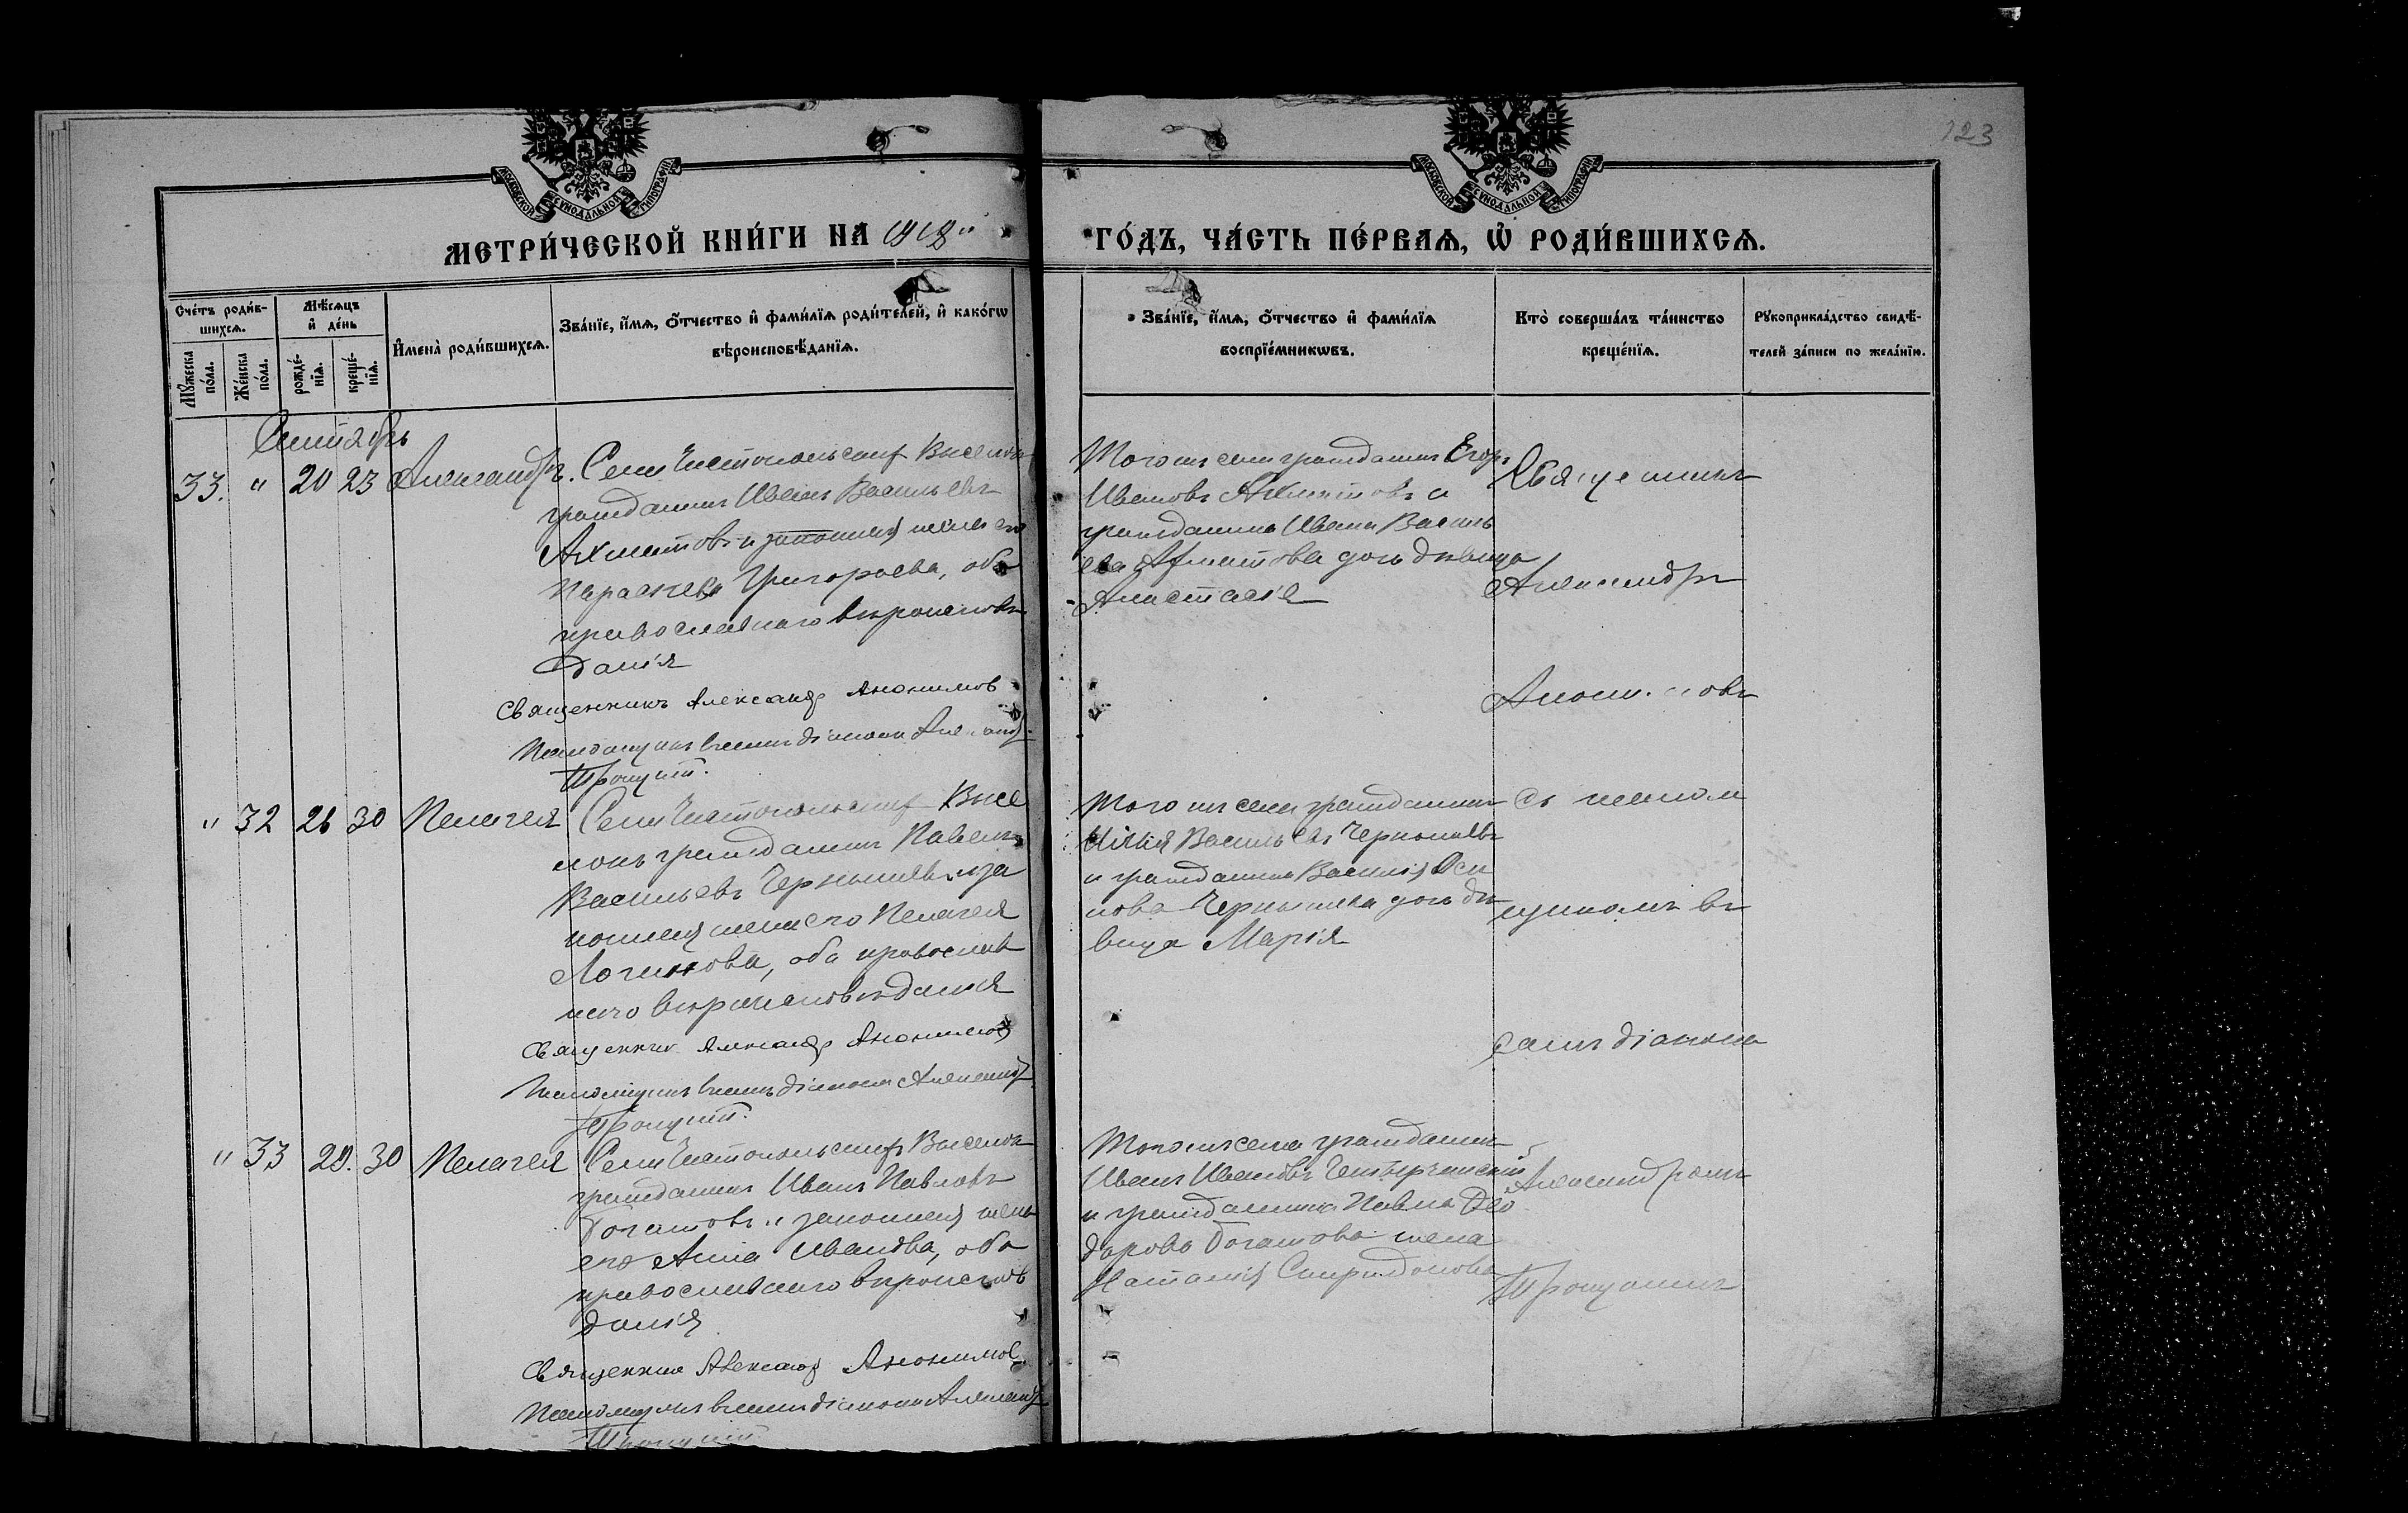 123
МОСКОВСКОЙ СѴНОДАЛЬНОЙ ТИПОГРАФІИ
МОСКОВСКОЙ СѴНОДАЛЬНОЙ ТИПОГРАФІИ
МЕТРИ́ЧЕСКОЙ КНИ́ГИ НА 1918
ГО́ДЪ, ЧА́СТЬ ПЕ́РВАѦ, Ѡ҆ РОДИ́ВШИХСѦ.
Сче́тъ роди́в-
шихсѧ.
Мꙋ́жеска
по́ла.
Же́нска
по́ла.
Мѣ́сѧцъ
и҆ де́нь
рожде́-
нїѧ.
креще́-
нїѧ.
И҆мена̀ роди́вшихсѧ.
Зва́нїе, и҆́мѧ, ѻ҆́тчество и҆ фами́лїѧ роди́телей, и҆ како́гѡ
вѣроисповѣ́данїѧ.
Зва́нїе, и҆́мѧ, ѻ҆́тчество и҆ фами́лїѧ
воспрїе́мникѡвъ.
Кто̀ соверша́лъ та́инство
креще́нїѧ.
Рꙋкоприкла́дство свидѣ́-
телей за́писи по жела́нїю.
Сентябрь
33. " 20 23 Александръ.
Села Чистопольскихъ Выселокъ
гражданинъ Иванъ Васильевъ
Ахматовъ и законная жена его
Параскева Григорьева, оба
православнаго вѣроисповѣ
данія
Священникъ Александр Анонимов
діакона
Троицкій.
Того же села гражданинъ Егоръ
Ивановъ Ахматовъ и
гражданина Ивана Василь
ева Ахматова дочь дѣвица
Анастасія
Священникъ
Александръ
" 32 26 30 Пелагея
Села Чистопольскихъ Высе
локъ гражданинъ Павелъ
Васильевъ Чернышевъ и за
конная жена его Пелагея
Логинова, оба православ
наго вѣроисповѣданія
Священник Александр Анонимов
діакона Александръ
Троицкій.
Того же села гражданинъ
Илья Васильевъ Чернышевъ
и гражданина Василія Оси
пова Чернышева дочь дѣ
вица Марія
Съ
" 33 29. 30 Пелагея
Села Чистопольскихъ Выселокъ
гражданинъ Иванъ Павловъ
Богатовъ и законная жена
его Анна Иванова, оба
православнаго вѣроисповѣ
данія
Священник Александр Анонимов
діакона Александръ
Троицкій
Того же села гражданинъ
Иванъ Ивановъ
и гражданина Павла Ѳео
дорова Богатова жена
Наталія Спиридонова
діакона
Александромъ
Троицкимъ